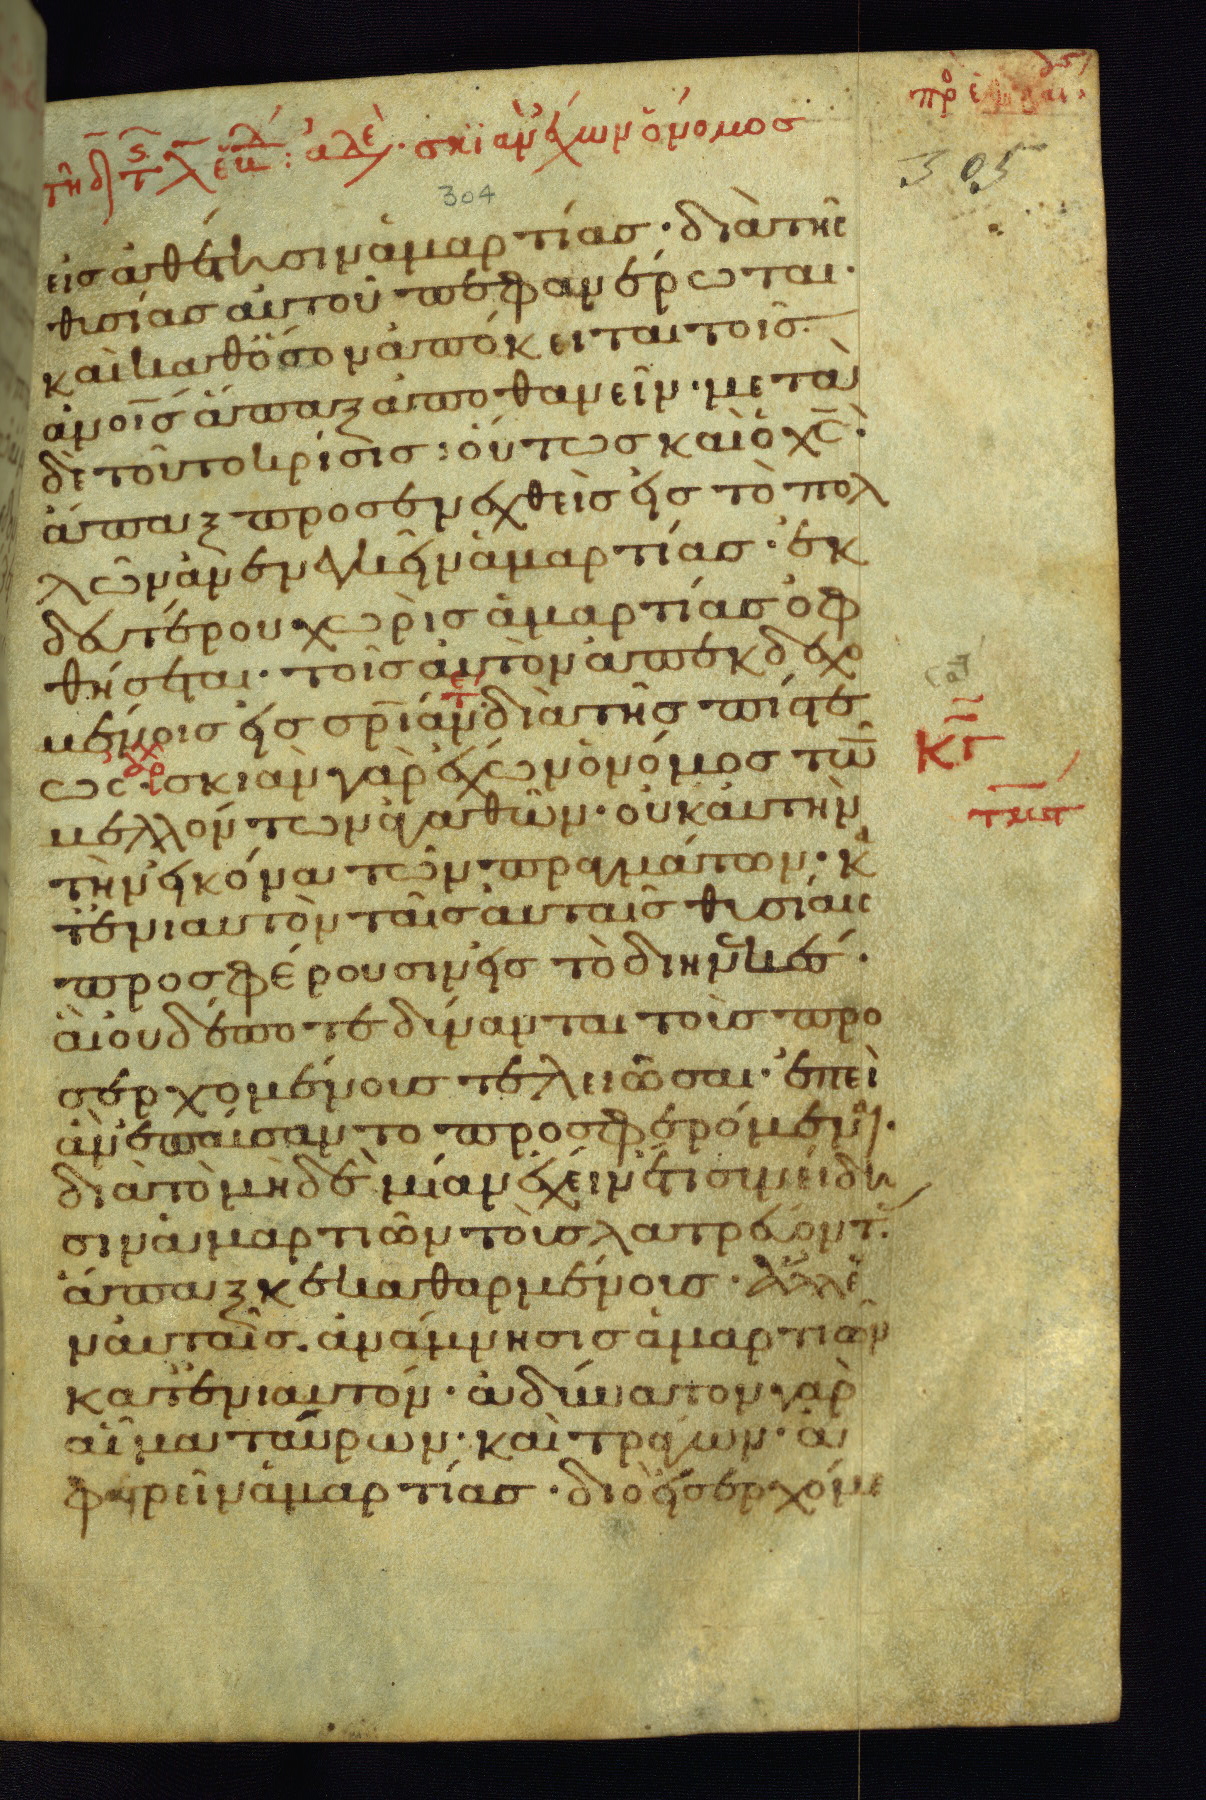 πρ ε
τῆ δ λ · ἀδε · σκιὰν ἔχων ὁ νόμος
305
304
εἰς ἀθέτησιν ἁμαρτίας · διὰ τῆς
θυσίας αὐτοῦ πεφανέρωται ·
καὶ καθ ὅσον ἀπόκειται τοῖς
ἀνοις ἅπαξ ἀποθανεῖν · μετὰ
δὲ τοῦτο κρίσις : οὕτως καὶ ὁ χς ·
ἅπαξ προσενεχθεὶς εἰς τὸ πολ
λῶν ἀνενεγκεῖν ἁμαρτίας · ἐκ
δευτέρου χωρὶς ἁμαρτίας ὀφ
θήσεται · τοῖς αὐτὸν ἀπεκδεχο
μένοις εἰς σρίαν διὰ τῆς πίστε
ως · σκιὰν γὰρ ἔχων ὁ νόμος τῶ
μελλόντων ἀγαθῶν · οὐκ αὐτὴν
τὴν εἰκόνα τῶν πραγμάτων · κα
τ ἐνιαυτὸν ταῖς αὐταῖς θυσίαις
προσφέρουσιν εἰς τὸ διηνεκές ·
αἳ οὐδέποτε δύνανται τοῖς προ
σερχομένοις τελειῶσαι · ἐπεὶ
ἂν ἐπαύσαντο προσφερόμεναι ·
διὰ τὸ μηδεμίαν ἔχειν ἔτι συνείδη
σιν ἁμαρτιῶν τοὺς λατρεύοντ
ἅπαξ κεκαθαρμένοις · ἀλλ ἐ
ν αὐταῖς · ἀνάμνησις ἁμαρτιῶν
κατ ἐνιαυτόν · ἀδύνατον γὰρ
αἷμα ταύρων · καὶ τράγων · ἀ
φαιρεῖν ἁμαρτίας · διὸ εἰσερχόμε
κγ